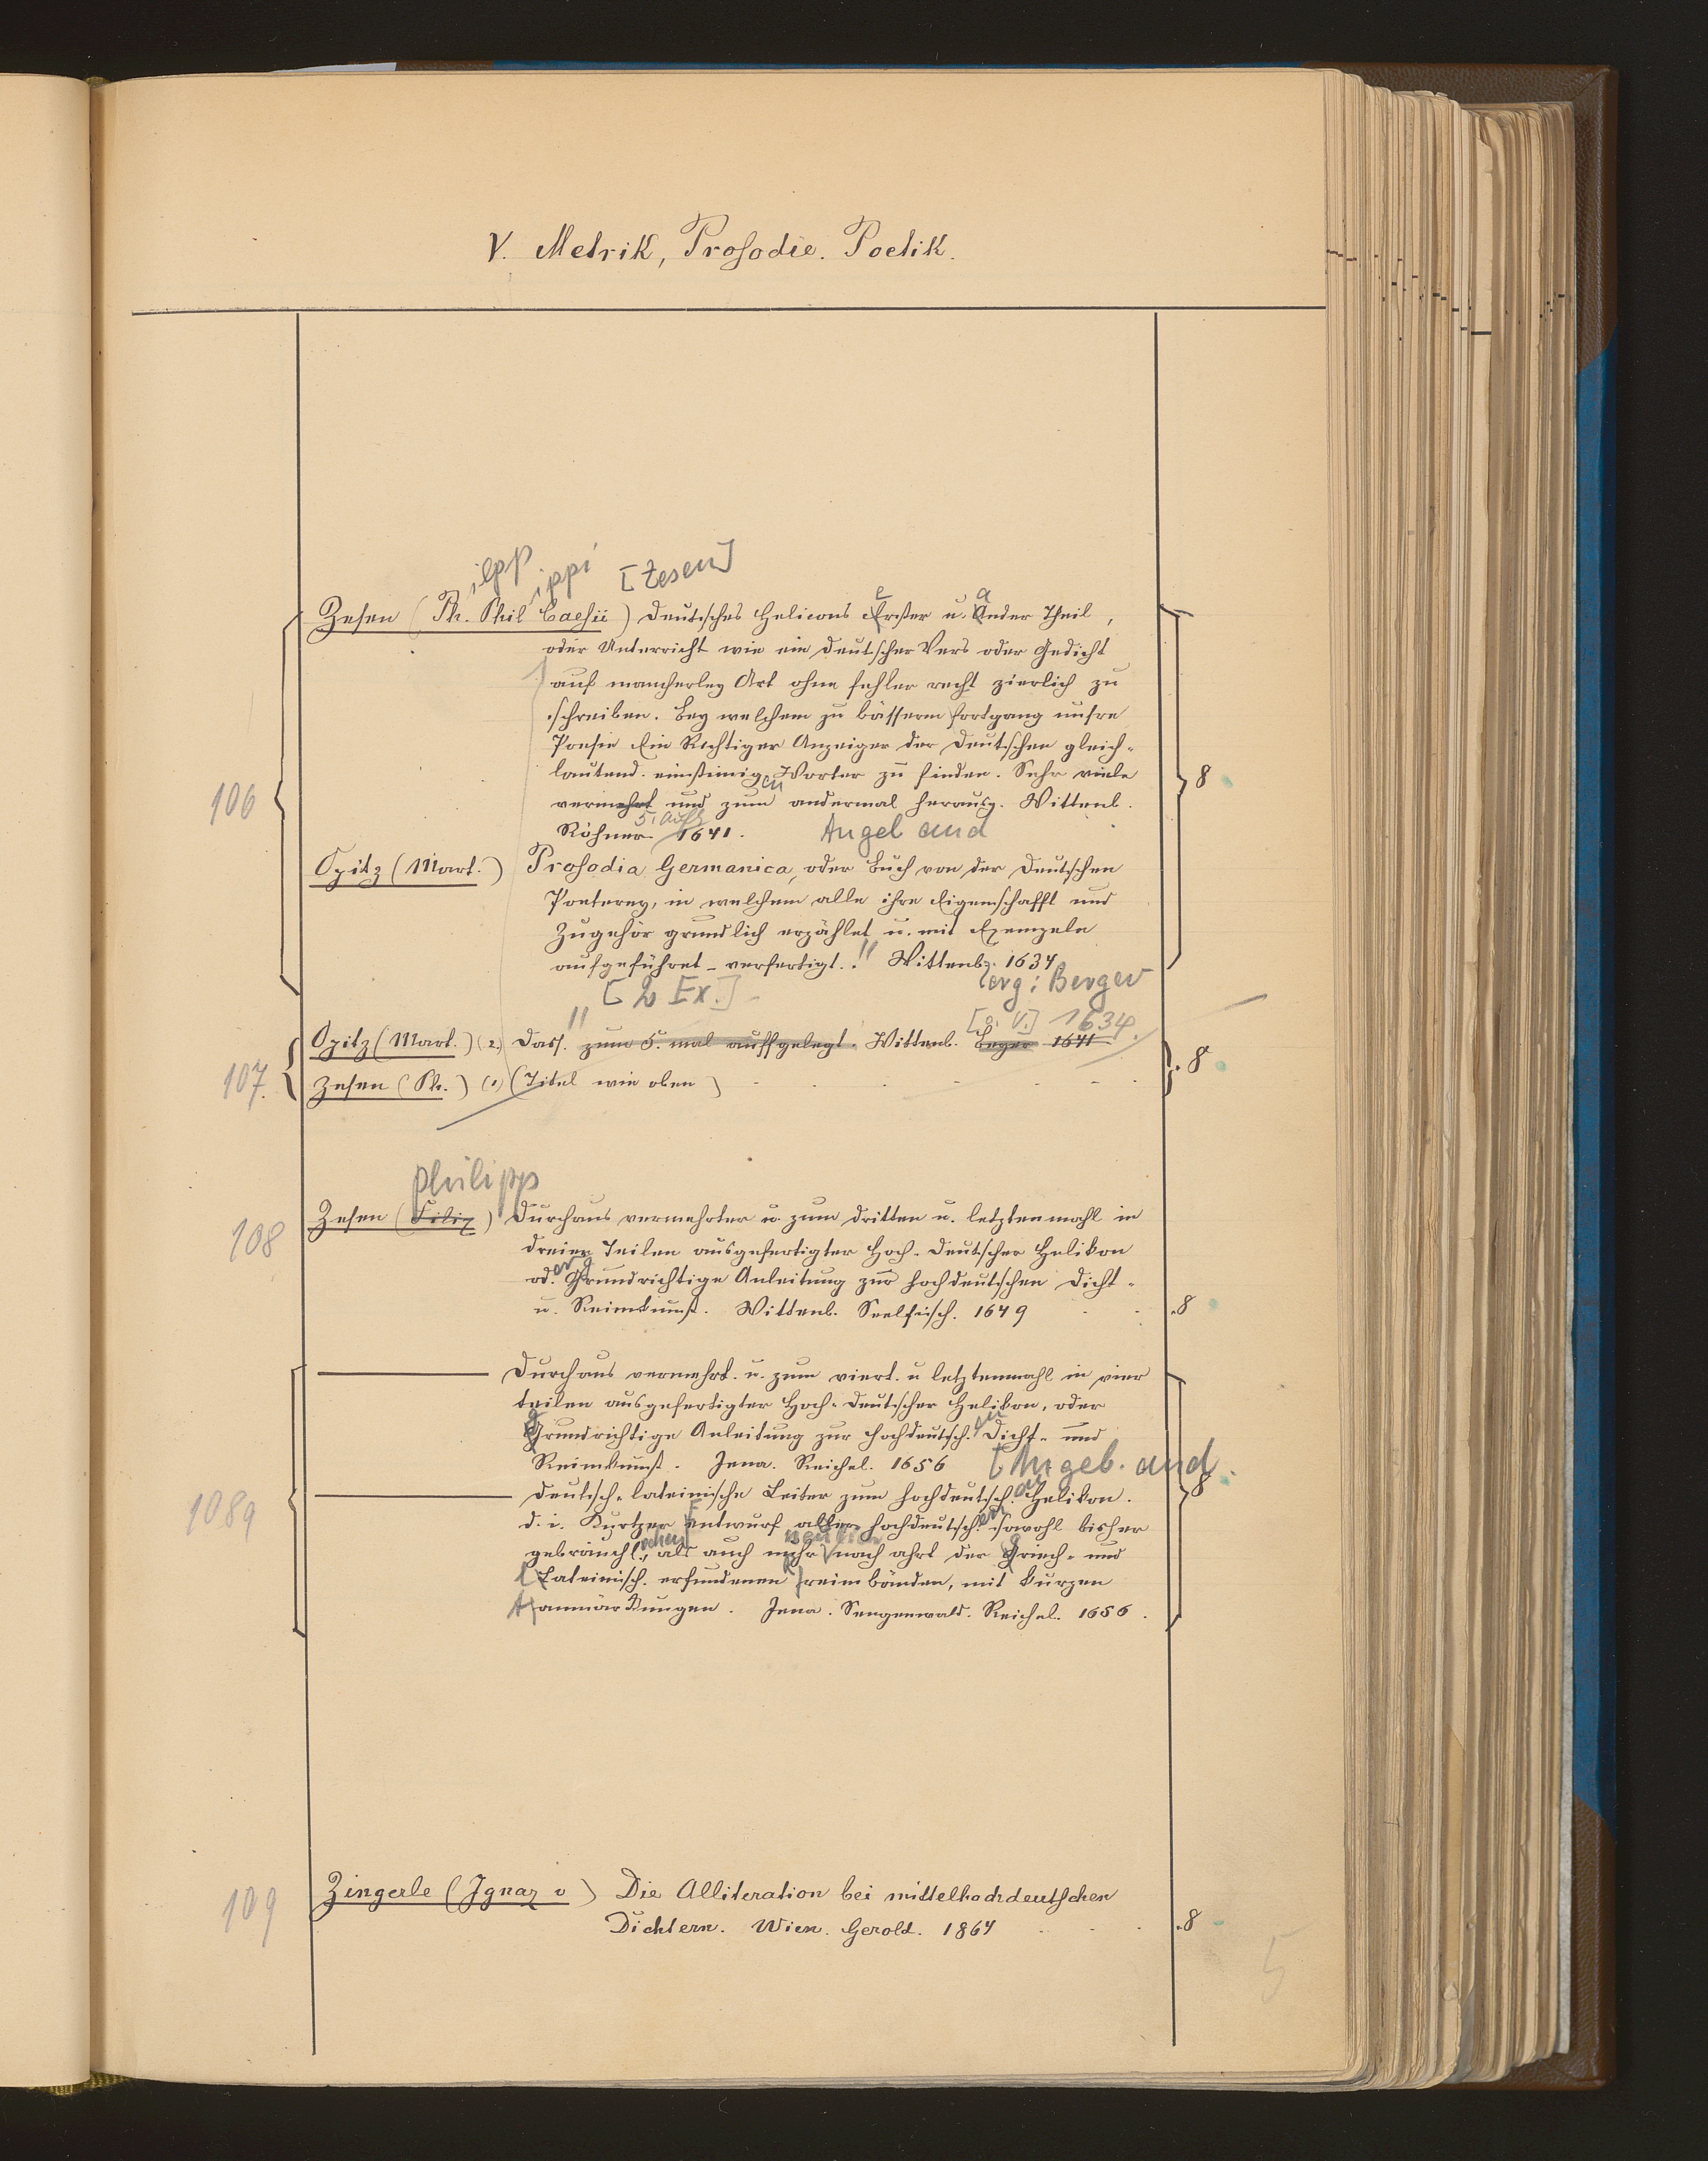 V. Metrik, Prosodie. Poetik.
ilipp ippi [Zesen]
e a
Zesen (Ph. Phil Caesii) Deutsches Helicons Erster u. Ander Theil,
oder Unterricht wie ein Deutscher Vers oder Gedicht
auf mancherley Art ohne fehler recht zierlich zu
schreiben. Bey welchem zu bässerm fortgang unsre
Poesie Ein Richtiger Anzeiger der Deutschen gleich-
lautend. einstimig. Worter zu finden. Sehr viele
en
106
8
vermehrt und zum andermal herausg. Wittenb.
5. Aufl
Röhner 1641. Angebund
Opitz (Mart.) Prosodia Germanica, oder Buch von der Deutschen
Poeterey, in welchem alle ihre Eigenschafft und
Zugehör grundlich erzählet u. mit Exempeln
aufgeführet - verfertigt. Wittenbg. 1634
[2 Ex.] erg: Berger
[o. V.] 1634.
Opitz (Mart.) (2.) Dass. zum 5. mal auffgelegt. Wittenb. Beger 1641
107. 8
Zesen (Ph.) (1) (Titel wie oben)
philipp
Zesen (Filip) Durchaus vermehrter u. zum dritten u. letztenmahl in
108
dreien Teilen ausgefertigter Hoch-Deutscher Helikon
er g
od. Grundrichtige Anleitung zur hochdeutschen Dicht-
u. Reimkunst. Wittenb. Seelfisch. 1649 8
Durchaus vermehrt. u. zum viert. u letztenmahl in vier
teilen ausgefertigter Hoch-Deutscher Helikon, oder
g en
Grundrichtige Anleitung zur hochdeutsch. Dicht- und
Reimkunst. Jena. Reichel. 1656 [Angeb. and
8
Deutsch-lateinische Leiter zum hochdeutsch. Helikon.
1089
d. i. Kurtzer entwurf aller hochdeutsch. sowohl bisher
gebräuchl., als auch mehr nach ahrt der Griech- und
Lateinisch. erfundenen reimbänden, mit kurzen
anmärkungen. Jena. Sengenwald. Reichel. 1656.
109
Zingerle (Ignaz v) Die Alliteration bei mittelhochdeutschen
Dichtern. Wien. Gerold. 1864 8
5